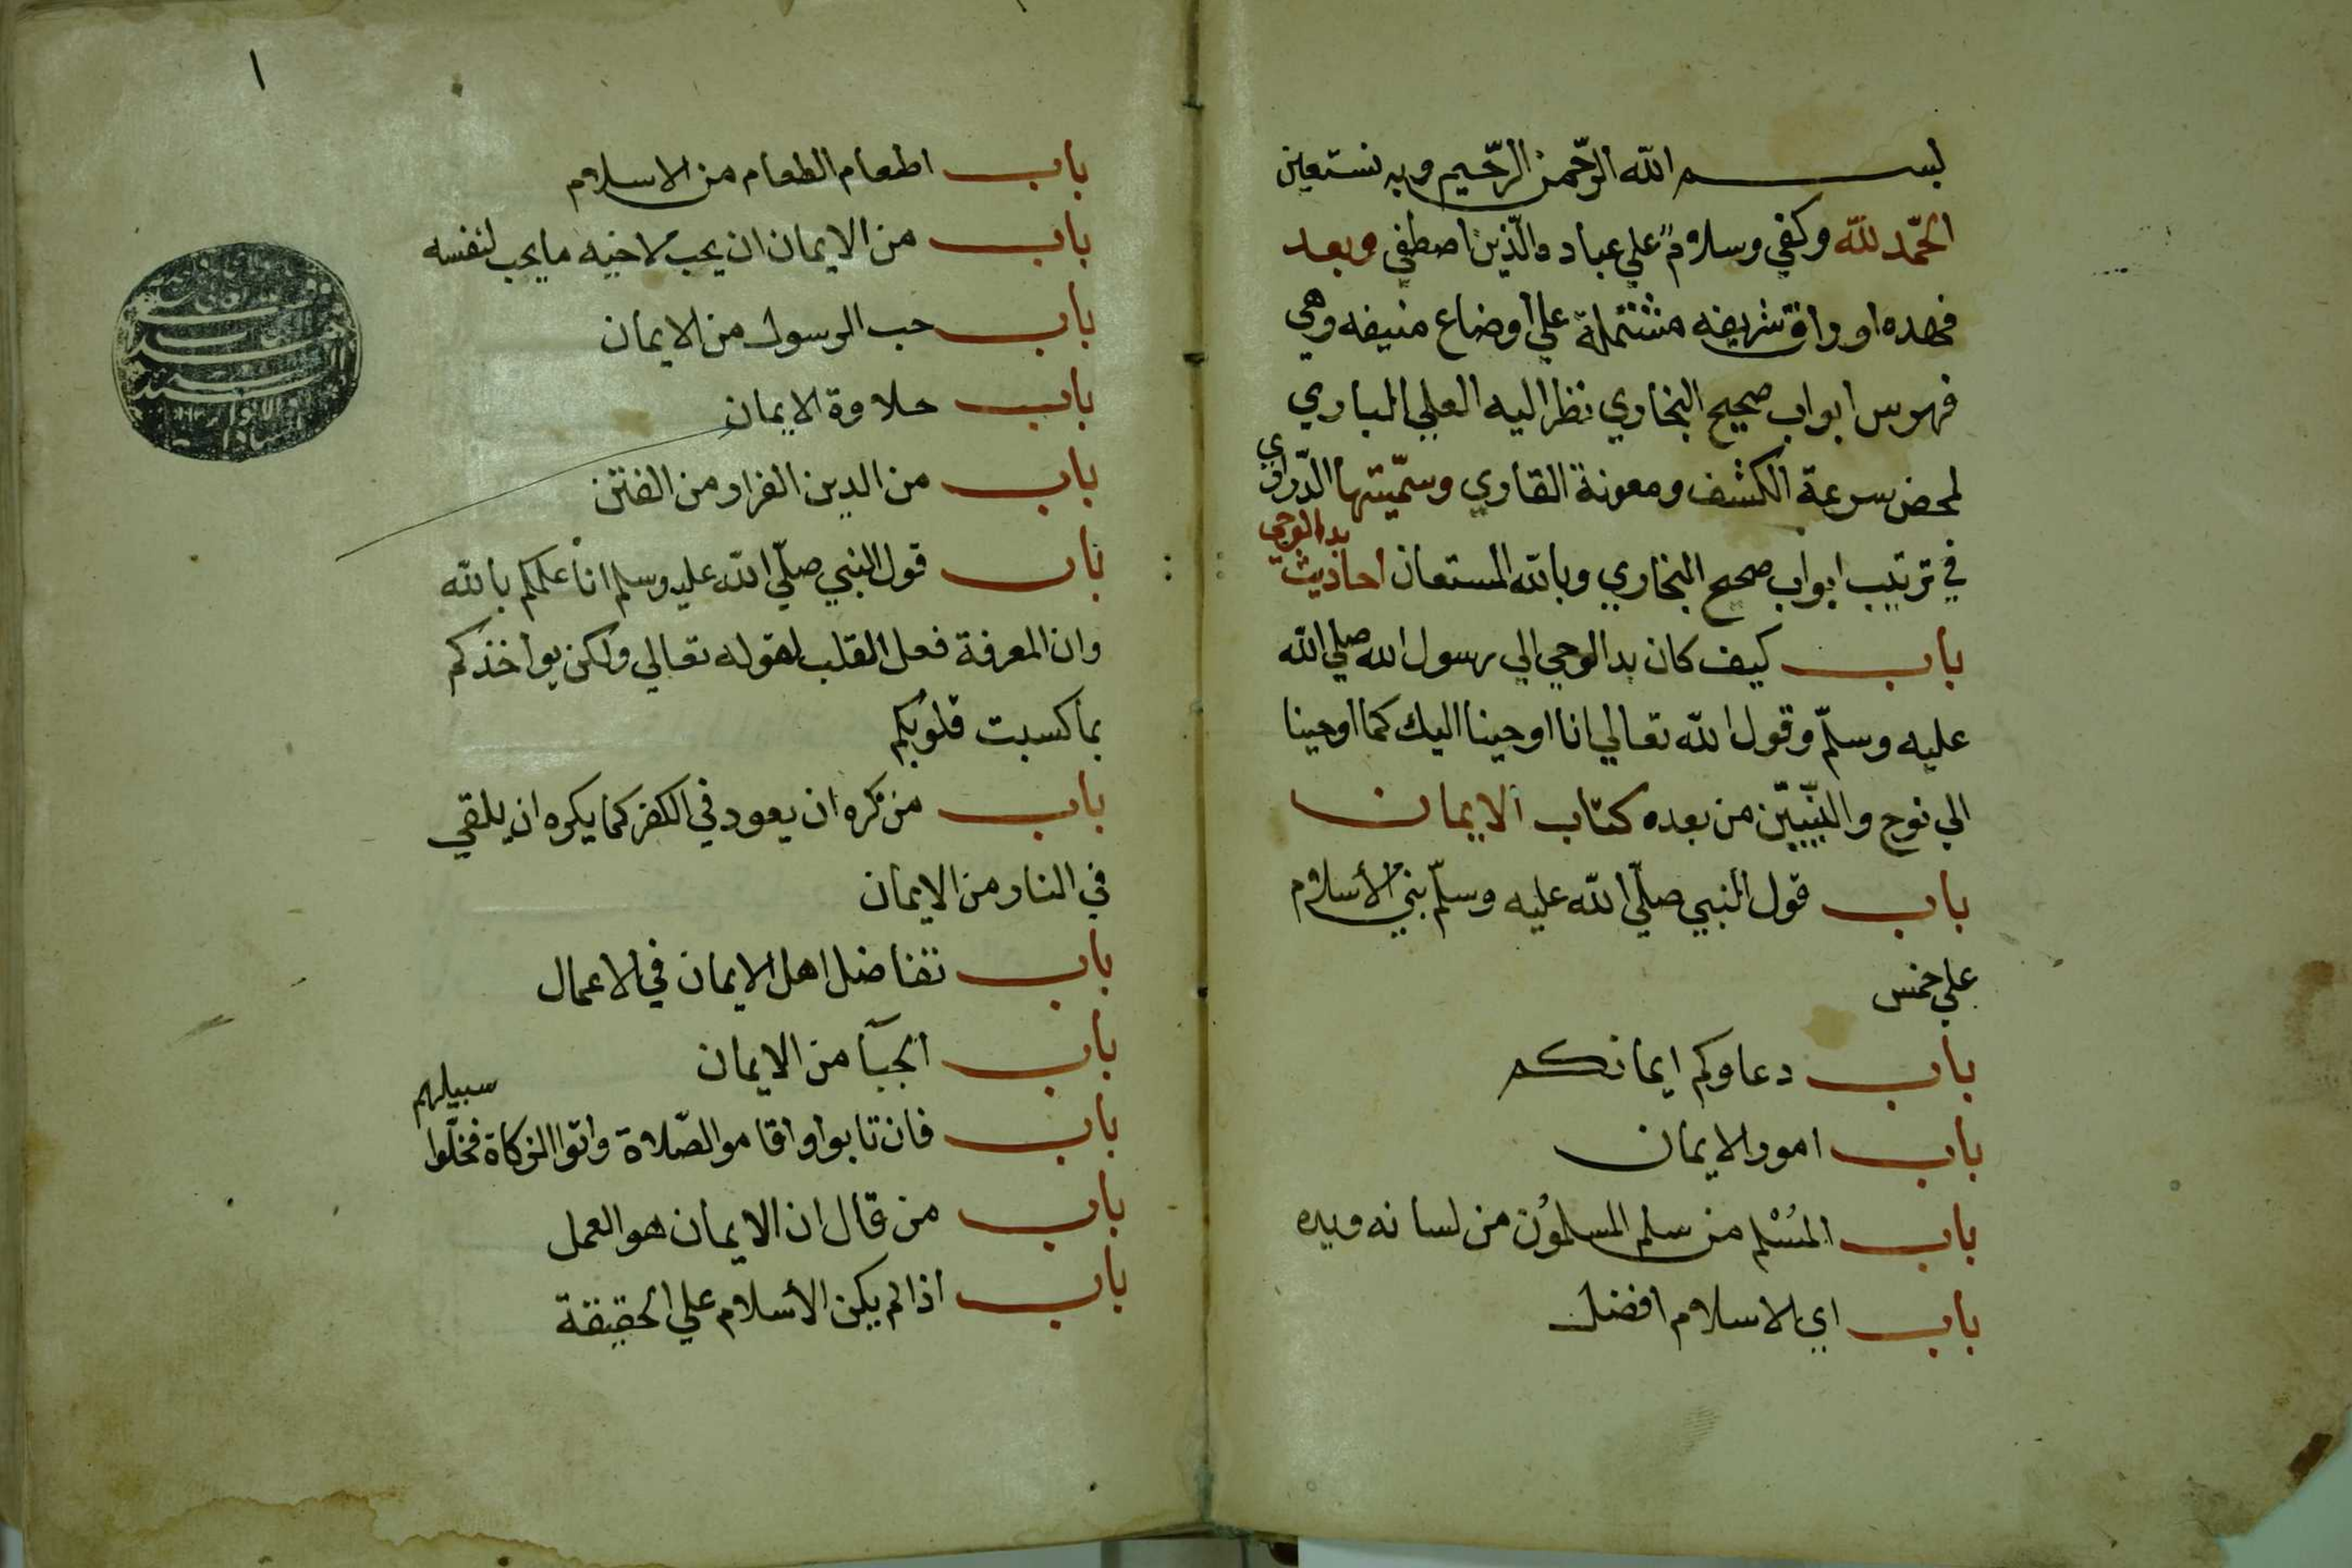 بسم الله الرّحمن الرّحيم وبه نستعين
الحمد لله وكفي وسلام علي عباده الّذين اصطفي وبعد
فهده اوراق شريفه مشتملة علي أوضاع منيفه وهي
فهرس ابواب صحيح البخاري نظر اليه العلي الباري
لمحض سرعة الكشف ومعونة القاري وسمّيتها الدّراري
في ترتيب ابواب صحيح البخاري وبالله المستعان احاديث بدا الوحي
باب كيف كان بدا الوحي الي رسول الله صلي الله
عليه وسلّم وقول الله تعالي انا اوحينا اليك كما اوحينا
الي نوح والنّبيّين من بعده كتاب الايمان
باب قول النبي صلّي الله عليه وسلّم بني الأسلام
علي خمس
باب دعاوكم ايمانكم
باب امور الايمان
باب المُسْلم من سلم المسلمون من لسانه ويده
باب اي الاسلام افضل
١
باب اطعام الطعام من الاسلام
باب من الايمان ان يحب لاخيه ما يحب لنفسه
باب حب الرسول من الايمان
باب حلاوة الايمان
باب من الدين الفرار من الفتن
باب قول النبي صلّي الله عليه وسلم انا علمكم بالله
وان المعرفة فعل القلب لقوله تعالي ولكن يواخذكم
بما كسبت قلوبكم
باب من كره ان يعود في الكفر كما يكره ان يلقي
في النار من الايمان
باب تفاضل اهل الايمان في الاعمال
باب الحيآ من الايمان
باب فان تابوا واقاموا الصّلاة واتوا الزكاة فخلّوا سبيلهم
باب من قال ان الايمان هو العمل
باب اذا لم يكن الأسلام علي الحقيقة